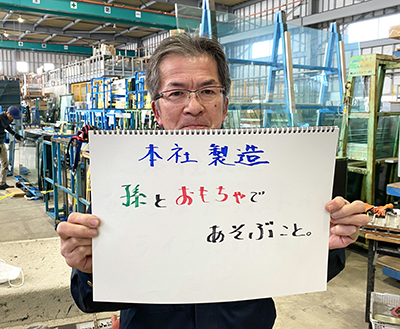 本社 製造
孫とおもちゃで
あそぶこと。